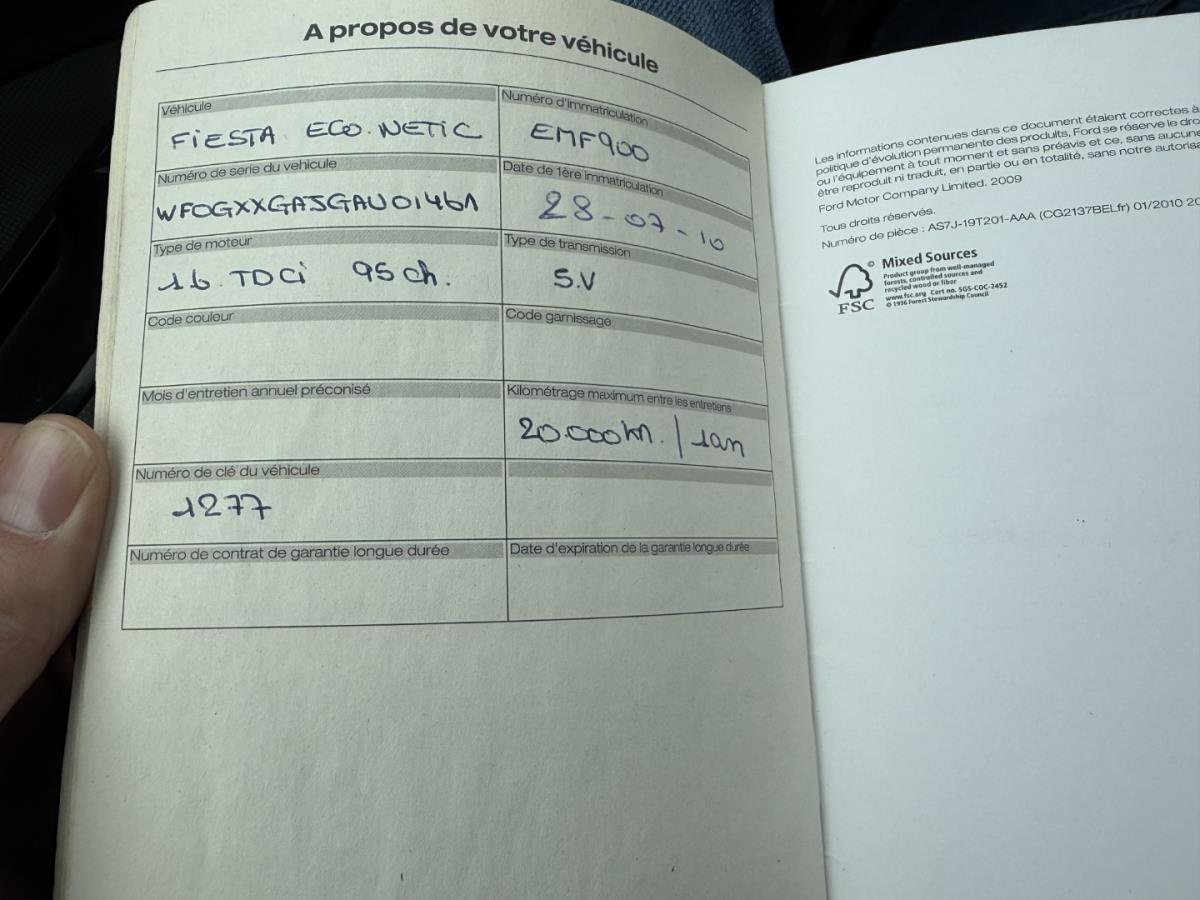 A propos de votre véhicule
Véhicule
FIESTA ECO.NETIC
Numéro d'immatriculation
EMF900
Numéro de serie du vehicule
WFOGXXGAJGAU01461
Date de 1ère immatriculation
28-07-10
Type de moteur
1.6 TDCi 95ch.
Type de transmission
5.V
Code couleur
Code garnissage
Mois d'entretien annuel préconisé
Kilométrage maximum entre les entretiens
20.000km. / 1an
Numéro de clé du véhicule
1277
Numéro de contrat de garantie longue durée
Date d'expiration de la garantie longue durée
Les informations contenues dans ce document étaient correctes à
politique d'évolution permanente des produits, Ford se réserve le dro
ou l'équipement à tout moment et sans préavis et ce, sans aucune
être reproduit ni traduit, en partie ou en totalité, sans notre autorisa
Ford Motor Company Limited. 2009
Tous droits réservés.
Numéro de pièce : AS7J-19T201-AAA (CG2137BELfr) 01/2010 20
Mixed Sources
Product group from well-managed
forests, controlled sources and
recycled wood or fiber
www.fsc.org Cert no. SGS-COC-2452
© 1996 Forest Stewardship Council
FSC